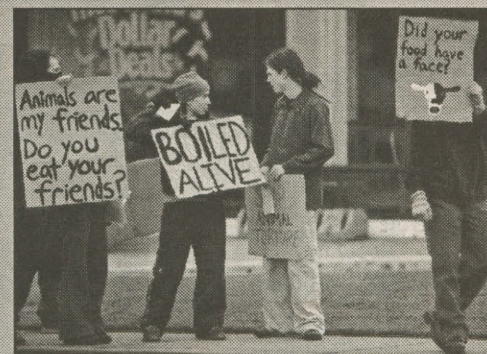 Dollar
Deals
Animals are
my friends.
Do you
eat your
friends?
BOILED
ALIVE
ANIMAL
TORTURE
Did your
food have
a face?